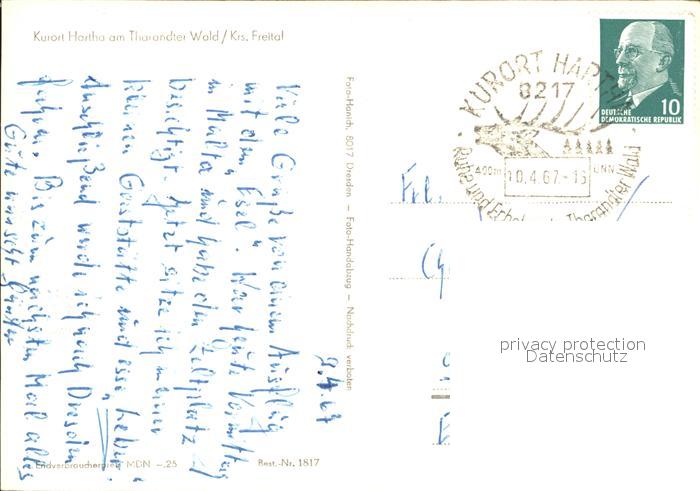 Kurort Hartha am Tharandter Wald / Krs. Freital
9.4.67
Viele Grüße von einem Ausflug
mit dem "Esel". War heute Vormittag
in Malter und habe den Zeltplatz
besichtigt. Jetzt sitze ich in einer
kleinen Gaststätte und esse Leber.
Anschließend werde ich nach Dresden
fahren. Bis zum nächsten Mal alles
Gute wünscht
Endverbraucherpreis MDN -.25
Best.-Nr. 1817
Foto-Hanich, 8017 Dresden – Foto-Handabzug – Nachdruck verboten
KURORT HARTHA
8217
400m
10.4.67.-16
ÜNN
Ruhe und Erholung Tharandter Wald
10
DEUTSCHE
DEMOKRATISCHE REPUBLIK
Frl.
privacy protection
Datenschutz